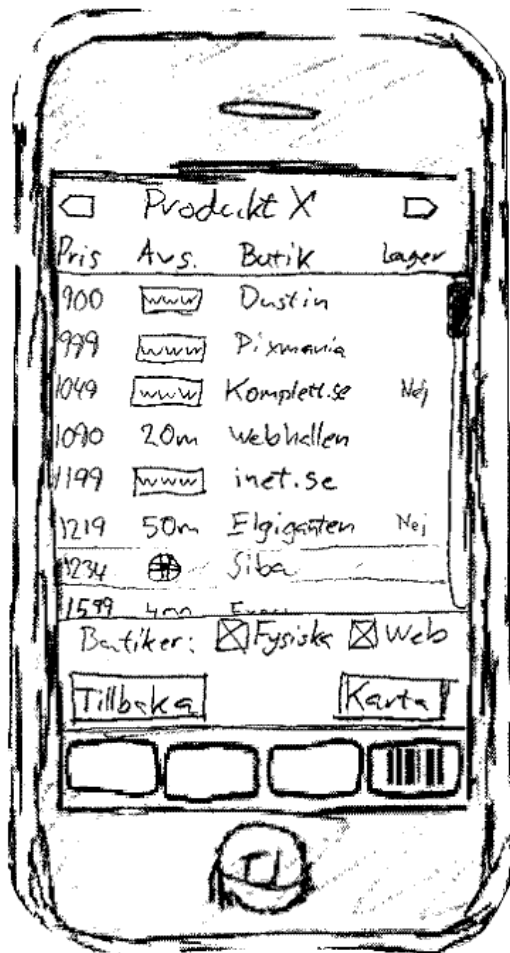 Produkt X
Pris Avs. Butik Lager
900 www Dustin
999 www Pixmania
1049 www Komplett.se Nej
1090 20m Webhallen
1199 www inet.se
1219 50m Elgiganten Nej
1234 Siba
1599
Butiker: Fysiska Web
Tillbaka Karta